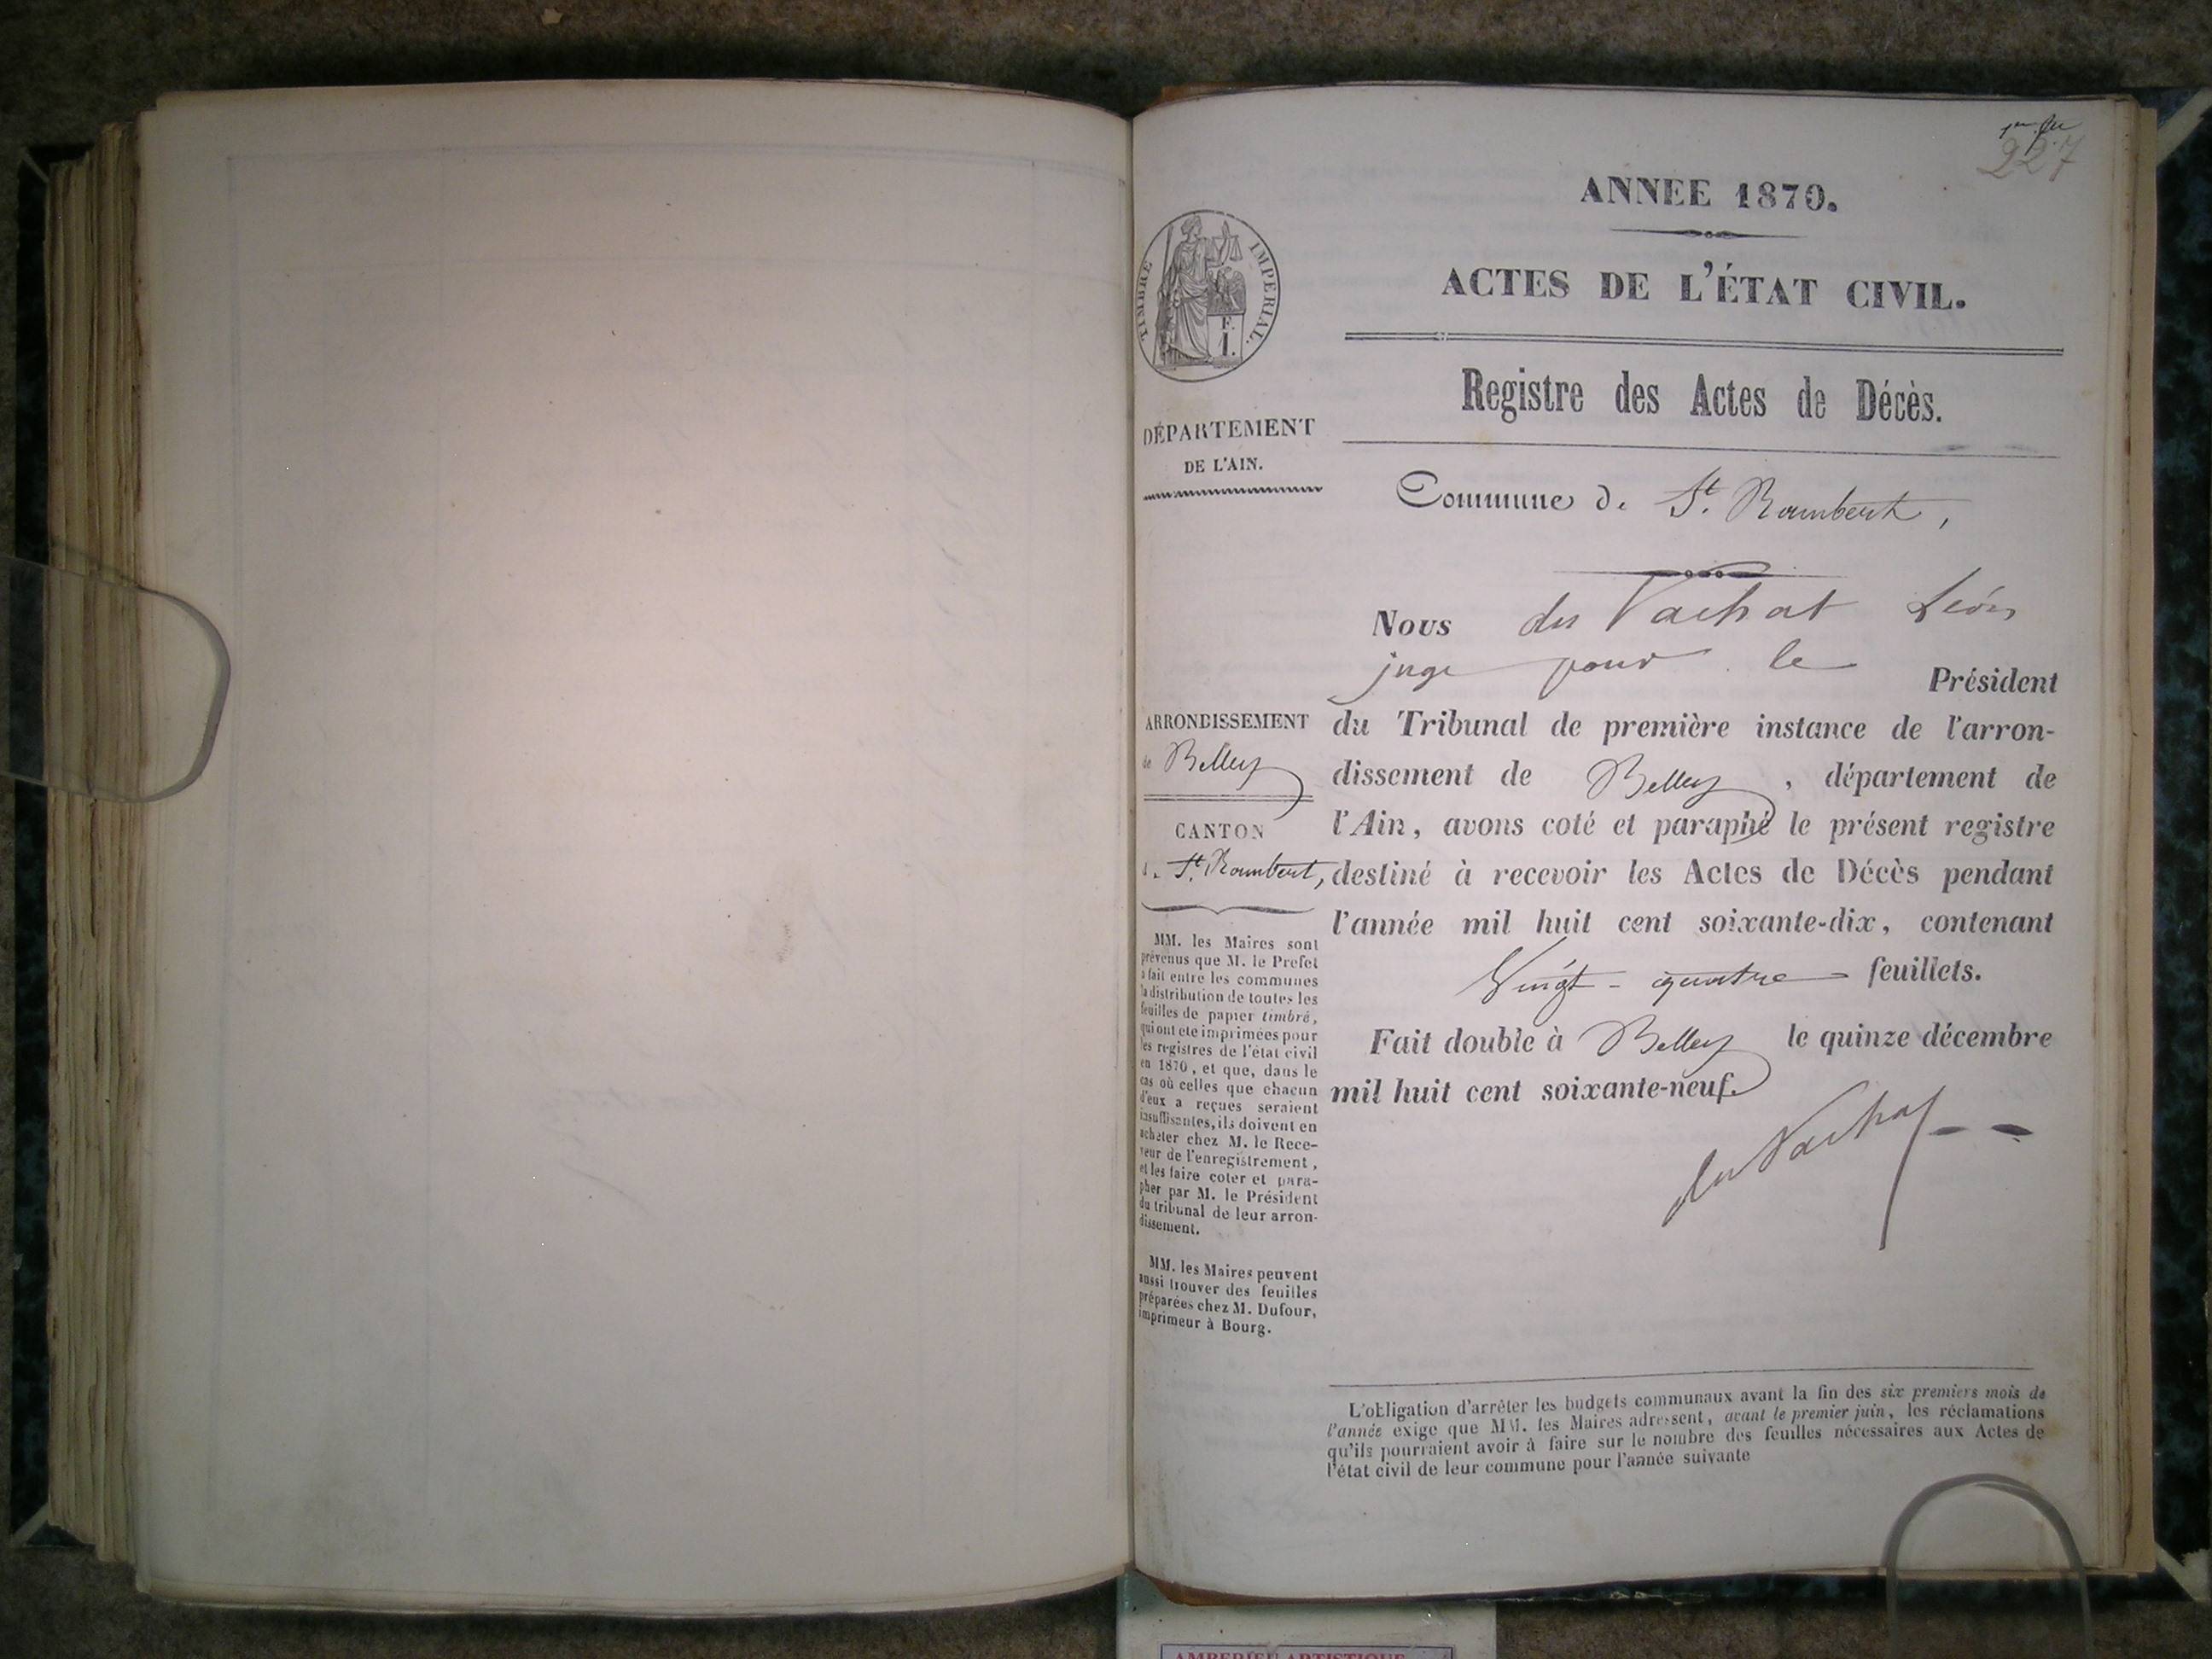 1er feu
227
ANNÉE 1870.
ACTES DE L'ÉTAT CIVIL.
TIMBRE IMPÉRIAL.
F.
1.
Registre des Actes de Décès.
DÉPARTEMENT
DE L'AIN.
Commune de St. Rambert,
Nous du Vachat Léon
juge pour le Président
du Tribunal de première instance de l'arron-
dissement de Belley, département de
l'Ain, avons coté et paraphé le présent registre
destiné à recevoir les Actes de Décès pendant
l'année mil huit cent soixante-dix, contenant
Vingt-quatre feuillets.
Fait double à Belley le quinze décembre
mil huit cent soixante-neuf.
du Vachat
ARRONDISSEMENT
de Belley
CANTON
de St. Rambert,
MM. les Maires sont
prévenus que M. le Préfet
a fait entre les communes
la distribution de toutes les
feuilles de papier timbré,
qui ont été imprimées pour
les registres de l'état civil
en 1870, et que, dans le
cas où celles que chacun
d'eux a reçues seraient
insuffisantes, ils doivent en
acheter chez M. le Rece-
veur de l'enregistrement,
et les faire coter et para-
pher par M. le Président
du tribunal de leur arron-
dissement.
MM. les Maires peuvent
aussi trouver des feuilles
préparées chez M. Dufour,
imprimeur à Bourg.
L'obligation d'arrêter les budgets communaux avant la fin des six premiers mois de
l'année exige que MM. les Maires adressent, avant le premier juin, les réclamations
qu'ils pourraient avoir à faire sur le nombre des feuilles nécessaires aux Actes de
l'état civil de leur commune pour l'année suivante
AMBERIEU ARTISTIQUE